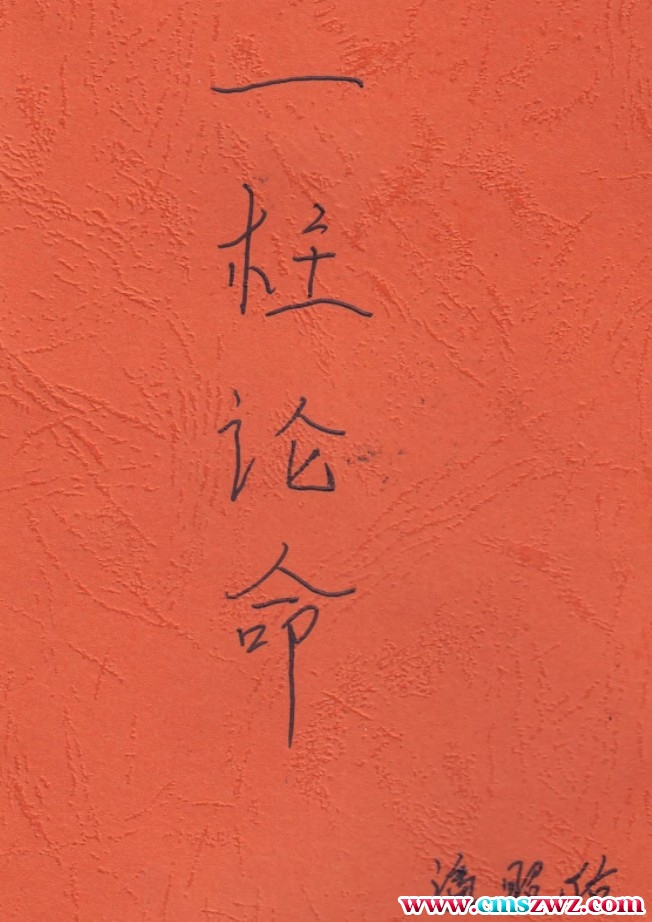 一柱论命
潘昭佑
www.cmszwz.com